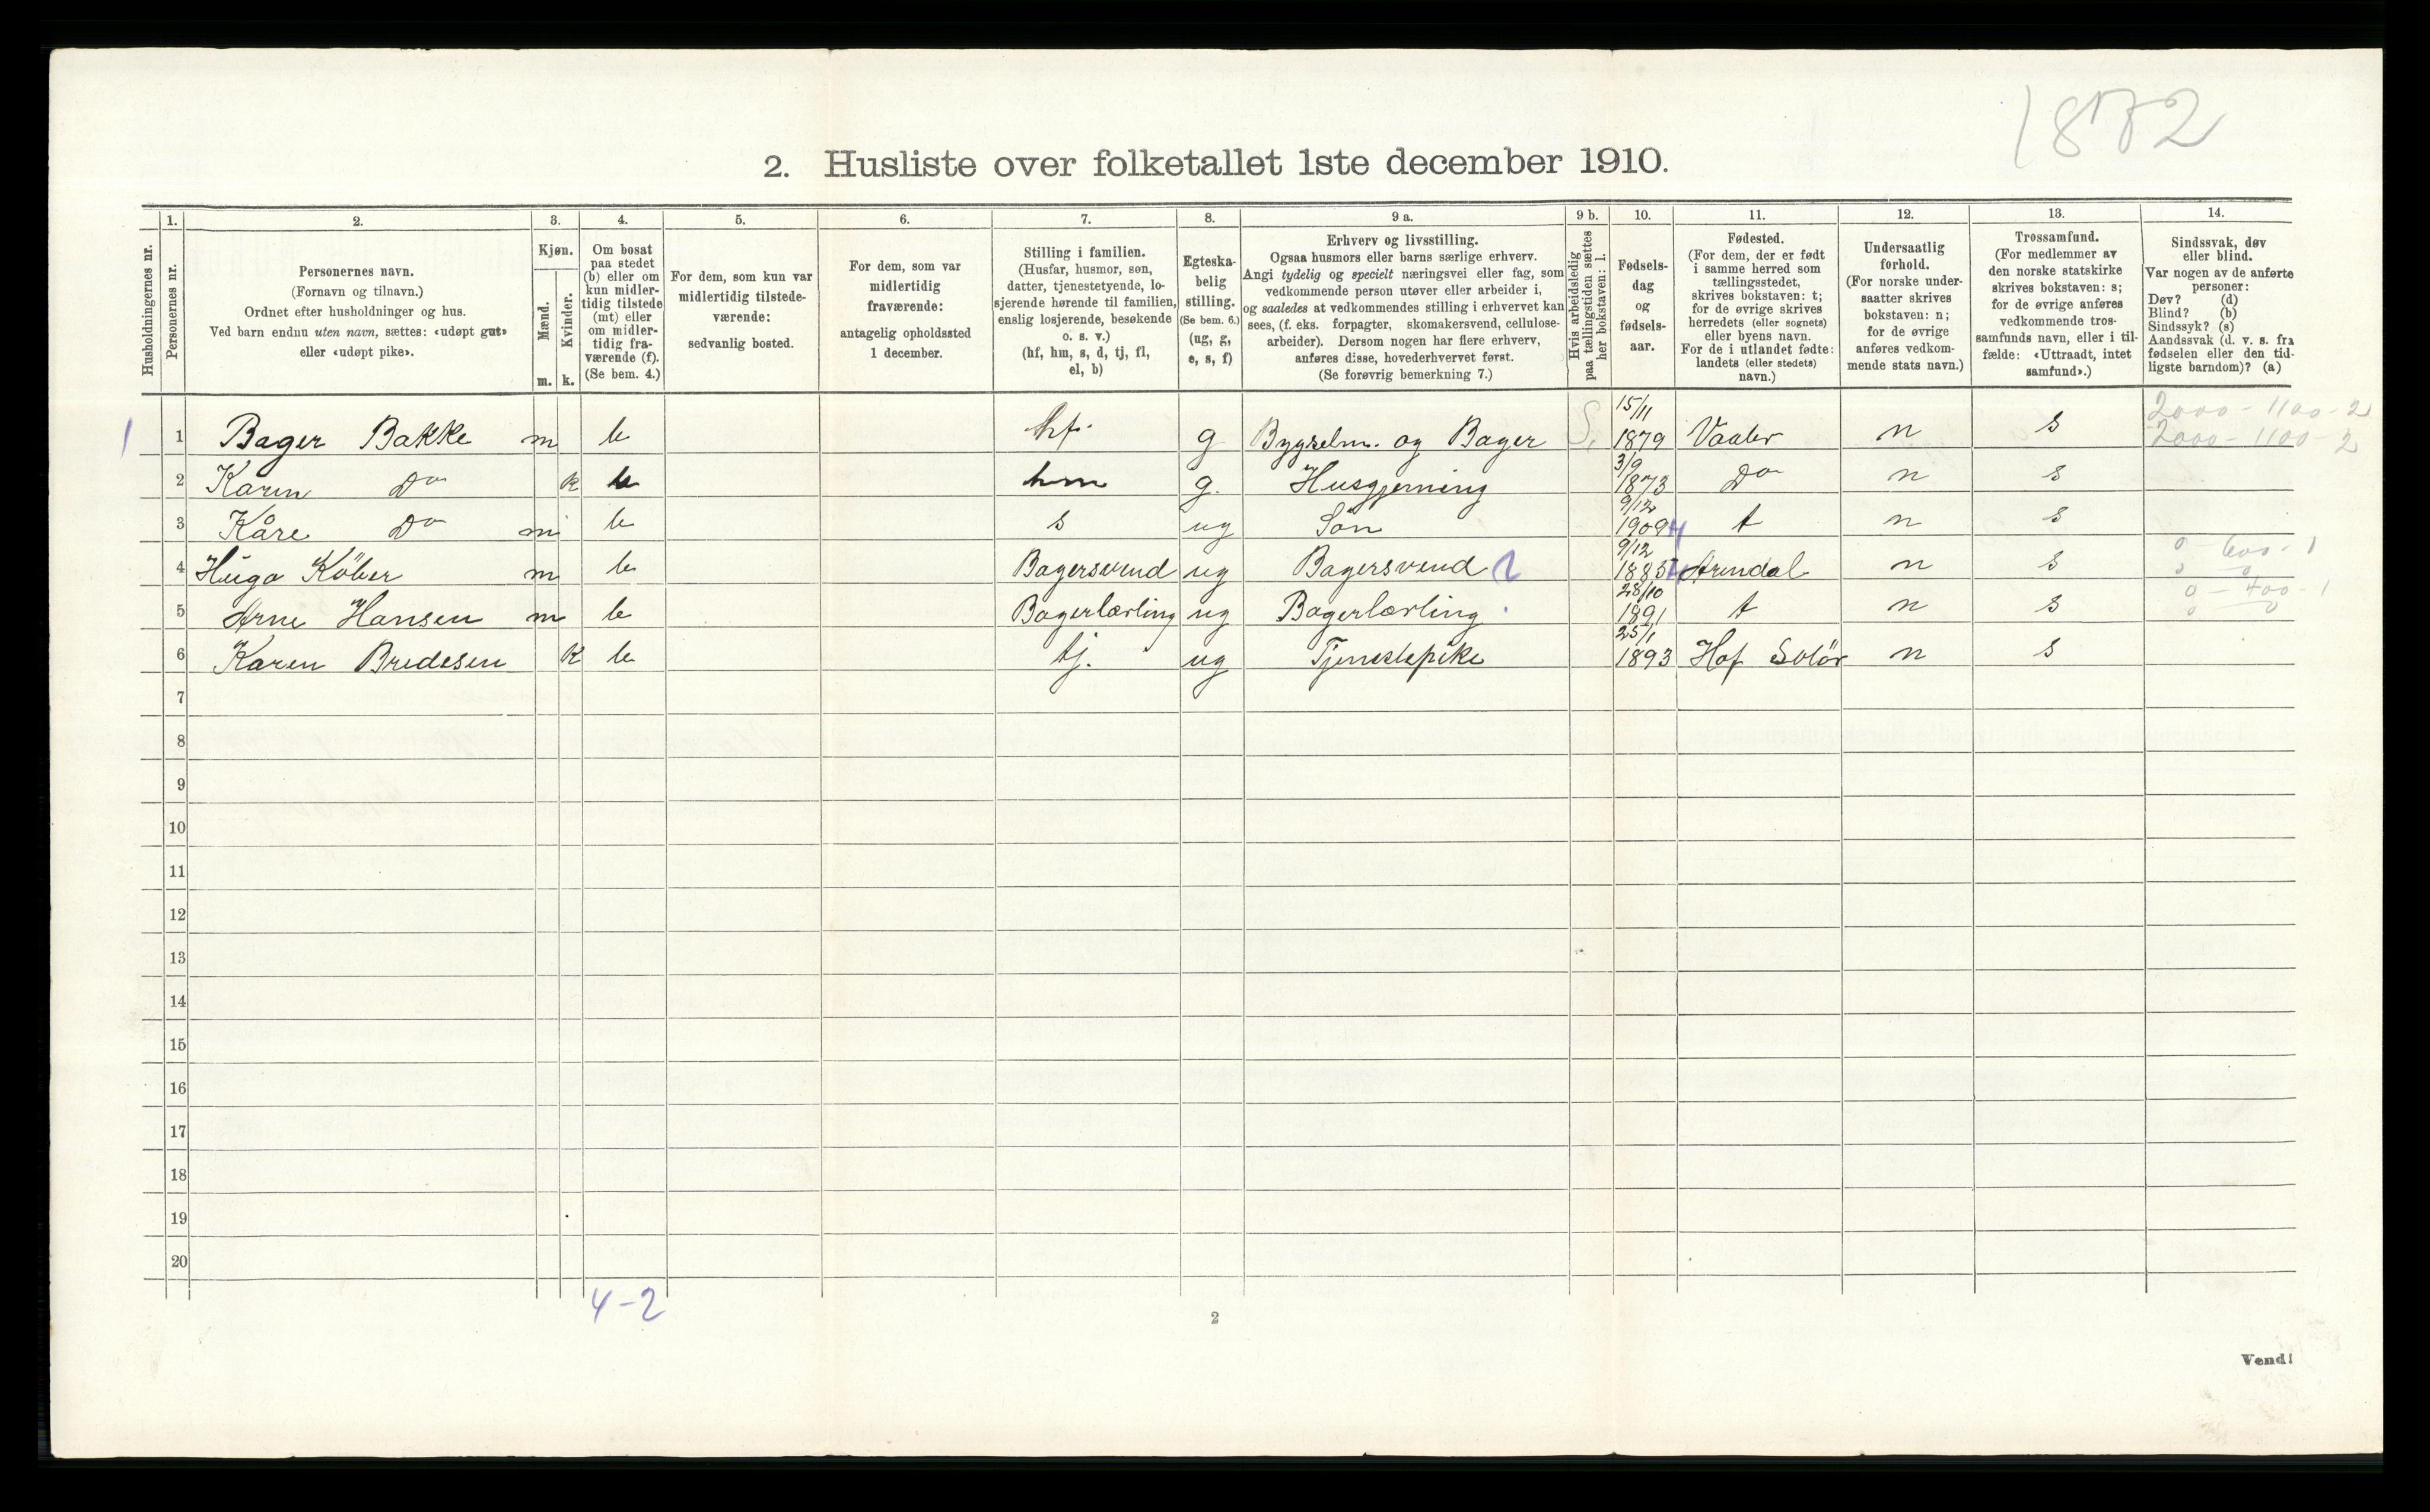 1872
2. Husliste over folketallet 1ste december 1910.
Husholdningernes nr.
1.
Personernes nr.
2.
Personernes navn.
(Fornavn og tilnavn.)
Ordnet efter husholdninger og hus.
Ved barn endnu uten navn, sættes: «udøpt gut»
eller «udøpt pike».
3.
Kjøn.
Mænd.
Kvinder.
m. k.
4.
Om bosat
paa stedet
(b) eller om
kun midler-
tidig tilstede
(mt) eller
om midler-
tidig fra-
værende (f).
(Se bem. 4.)
5.
For dem, som kun var
midlertidig tilstede-
værende:
sedvanlig bosted.
6.
For dem, som var
midlertidig
fraværende:
antagelig opholdssted
1 december.
7.
Stilling i familien.
(Husfar, husmor, søn,
datter, tjenestetyende, lo-
sjerende hørende til familien,
enslig losjerende, besøkende
o. s. v.)
(hf, hm, s, d, tj, fl,
el, b)
8.
Egteska-
belig
stilling.
(Se bem. 6.)
(ug, g,
e, s, f)
9 a.
Erhverv og livsstilling.
Ogsaa husmors eller barns særlige erhverv.
Angi tydelig og specielt næringsvei eller fag, som
vedkommende person utøver eller arbeider i,
og saaledes at vedkommendes stilling i erhvervet kan
sees, (f. eks. forpagter, skomakersvend, cellulose-
arbeider). Dersom nogen har flere erhverv,
anføres disse, hovederhvervet først.
(Se forøvrig bemerkning 7.)
9 b.
Hvis arbeidsledig
paa tællingstiden sættes
her bokstaven: l.
10.
Fødsels-
dag
og
fødsels-
aar.
11.
Fødested.
(For dem, der er født
i samme herred som
tællingsstedet,
skrives bokstaven: t;
for de øvrige skrives
herredets (eller sognets)
eller byens navn.
For de i utlandet fødte:
landets (eller stedets)
navn.)
12.
Undersaatlig
forhold.
(For norske under-
saatter skrives
bokstaven: n;
for de øvrige
anføres vedkom-
mende stats navn.)
13.
Trossamfund.
(For medlemmer av
den norske statskirke
skrives bokstaven: s;
for de øvrige anføres
vedkommende tros-
samfunds navn, eller i til-
fælde: «Uttraadt, intet
samfund».)
14.
Sindssvak, døv
eller blind.
Var nogen av de anførte
personer:
Døv? (d)
Blind? (b)
Sindssyk? (s)
Aandssvak (d. v. s. fra
fødselen eller den tid-
ligste barndom)? (a)
2000 - 1100 - 2
1 1 Bager Bakke m b hf. g Bygselm. og Bager S. 15/11 1879 Vaaler n s 2000 - 1100 - 2
2 Karen Do k b hm g. Husgjerning 3/9 1873 Do n s
3 Kåre Do m b s ug Sön 9/12 1909 4 t n s
4 Hugo Köber m b Bagersvend ug Bagersvend 9/12 1885 Arendal n s 0 - 600 - 1
5 Arne Hansen m b Bagerlærling ug Bagerlærling 28/10 1891 t n s 0 - 400 - 1
6 Karen Bredesen K b tj. ug Tjenestepike 25/1 1893 Hof Solör n s
7
8
9
10
11
12
13
14
15
16
17
18
19
20
4-2
2
Vend!